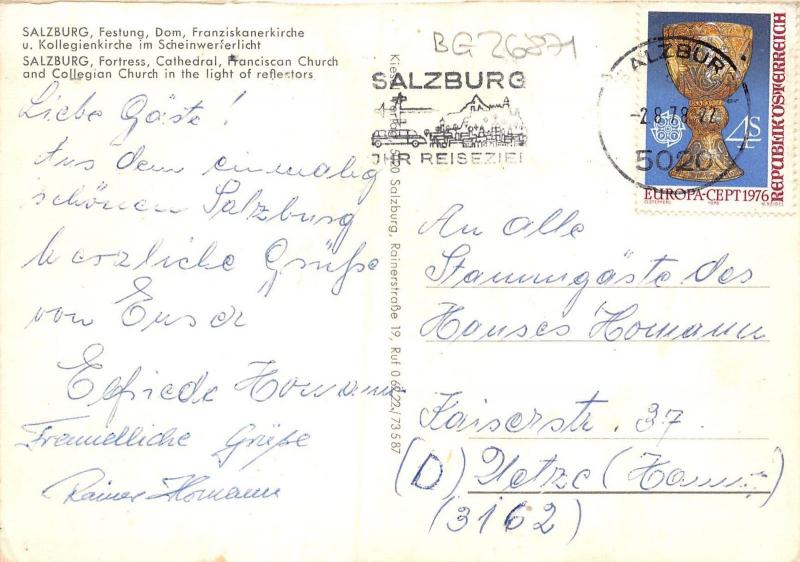 SALZBURG, Festung, Dom, Franziskanerkirche
u. Kollegienkirche im Scheinwerferlicht
SALZBURG, Fortress, Cathedral, Franciscan Church
and Collegian Church in the light of reflectors
Liebe Gäste!
Aus dem einmalig
schönen Salzburg
herzliche Grüße
von Eurer
Elfriede Homann
Freundliche Grüße
Rainer Homann
5020 Salzburg, Rainerstraße 19, Ruf 0 62 22 / 73 5 87
BG 26871
SALZBURG
IHR REISEZIEL
SALZBURG
-2.8.78
5020
4S
REPUBLIK ÖSTERREICH
EUROPA-CEPT 1976
An alle
Stammgäste des
Hauses Homann
Kaiserstr. 37
(D) Uetze (Hann)
(3162)